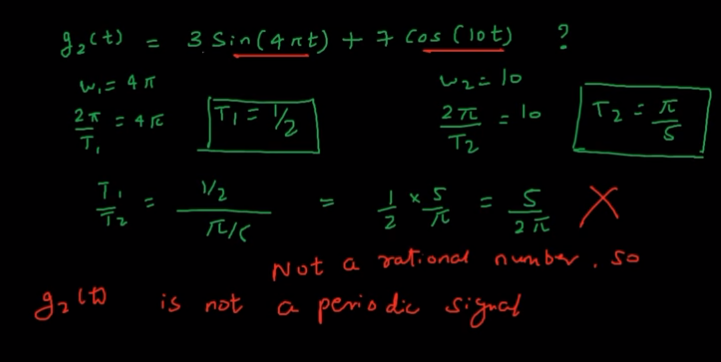 g₂(t) = 3 Sin(4πt) + 7 Cos(10t) ?
ω₁ = 4π ω₂ = 10
2π/T₁ = 4π T₁ = 1/2 2π/T₂ = 10 T₂ = π/5
T₁/T₂ = 1/2 / π/5 = 1/2 × 5/π = 5/2π X
Not a rational number, so
g₂(t) is not a periodic signal